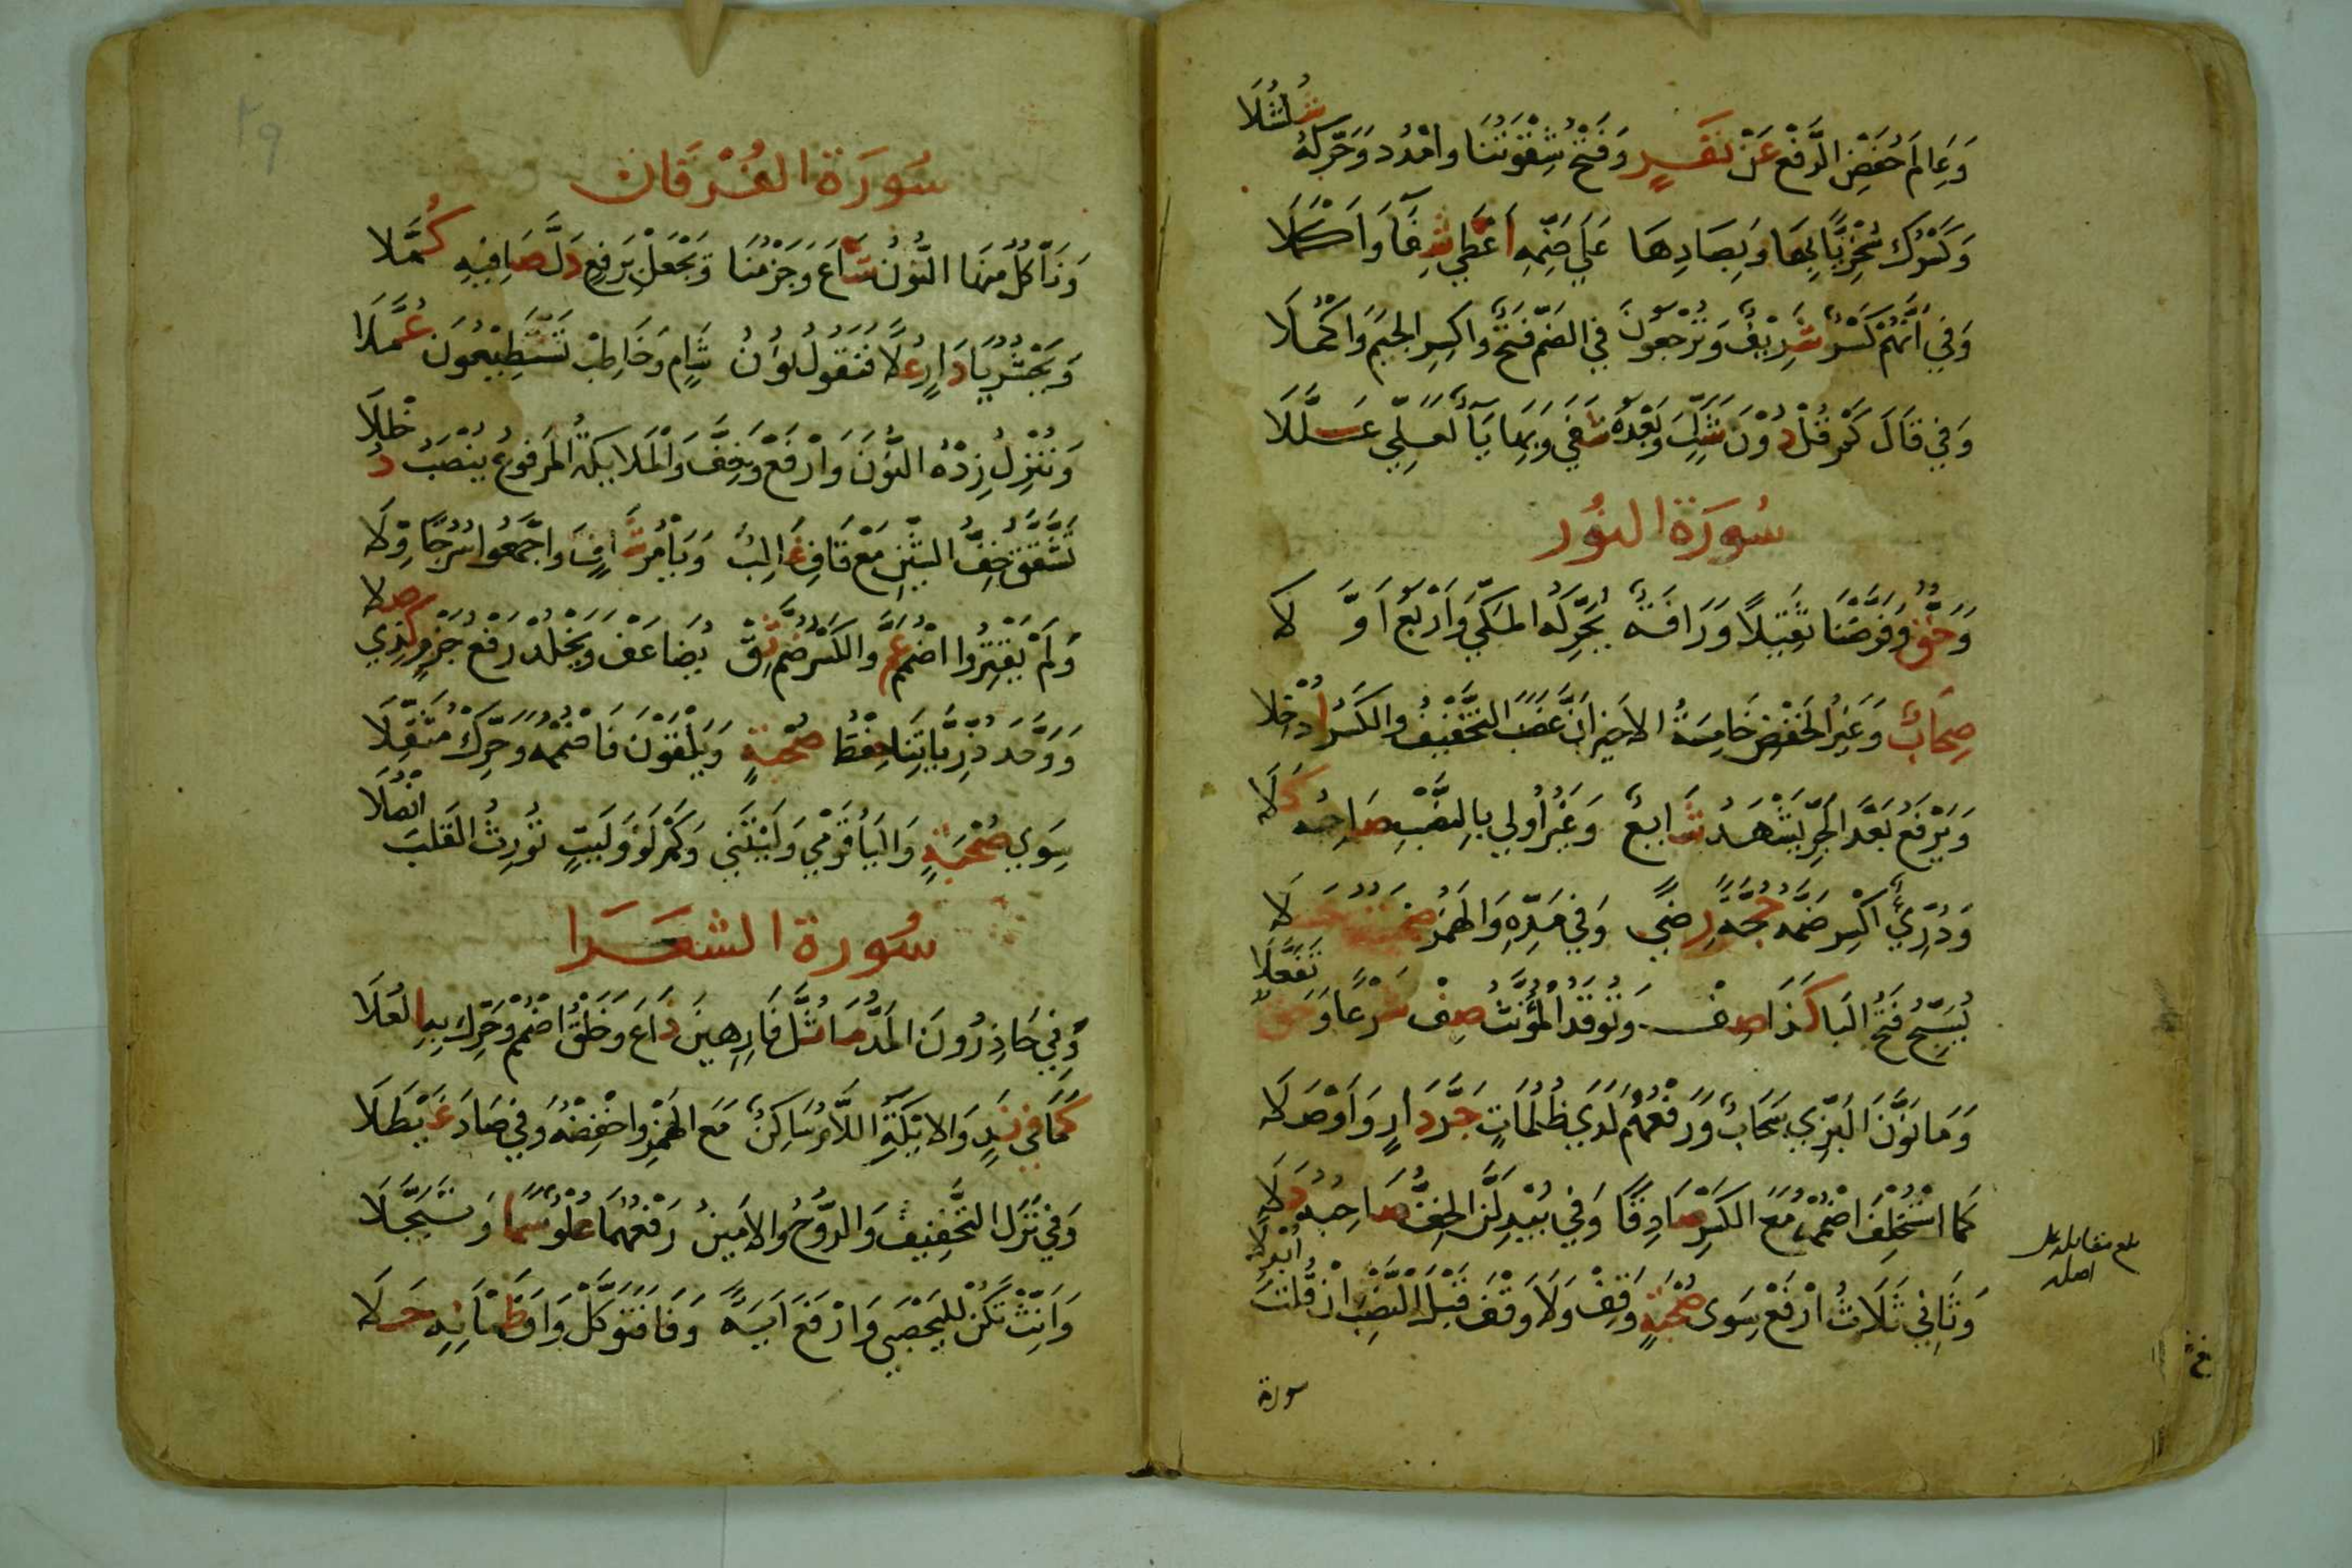 وَعَالِمُ خَفْضُ الرَّفْعِ عَنْ نَفَرٍ وَفَتْحُ شِقْوَتُنَا وَامْدُدْ وَحَرِّكْهُ شُلْشُلَا
وَكَسْرُكَ سُخْرِيًّا بِهَا وَبِصَادِهَا عَلَى ضَمِّهِ أَعْطَى شِفَآءً وَأَكْمَلَا
وَفِي أَنَّهُمْ كَسْرٌ شَرِيفٌ وَتُرْجَعُونَ فِي الضَّمِّ فَتْحٌ وَاكْسِرِ الْجِيمَ وَاكْمُلَا
وَفِي قَالَ كَمْ قُلْ دُونَ شَكٍّ وَبَعْدَهُ شَفَى وَبِهَا يَآءٌ لَعَلِّي عَلَّلَا
سُورَةُ النُّور
وَحَقٌّ وَفَرَّضْنَا ثَقِيلًا وَرَافَةٌ يُحَرِّكُهُ الْمَكِّي وَأَرْبَعُ أَوَّلَا
صِحَابٌ وَغَيْرُ الْحَفْصِ خَامِسَةُ الْأَخِيرِ أَنْ غَضِبَ التَّخْفِيفُ وَالْكَسْرُ أُدْخِلَا
وَيَرْفَعُ بَعْدَ الْجَرِّ يَشْهَدُ شَايِعٌ وَغَيْرُ أُولِي بِالنَّصْبِ صَاحِبُهُ كَلَا
وَدُرِّيٌّ اكْسِرْ ضَمَّهُ حُجَّةً رِضًى وَفِي مَدِّهِ وَالْهَمْزِ صُحْبَتُهُ حَلَا
يُسَبِّحُ فَتْحُ الْبَا كَذَا صِفْ وَتُوقَدُ الْمُؤَنَّثُ صِفْ شَرْعًا وَحَقٌّ تَفَعَّلَا
وَمَا نَوَّنَ الْبَزِّي سَحَابٌ وَرَفْعُهُمْ لَدَى ظُلُمَاتٍ جَرَّ دَارٍ وَأَوْصَلَا
كَمَا اسْتُخْلِفَ اضْمُمْهُ مَعَ الْكَسْرِ صَادِقًا وَفِي يُبْدِلَنَّ الْخِفُّ صَاحِبُهُ دَلَا
وَثَانِي ثَلَاثُ ارْفَعْ سِوَى صُحْبَةٍ وَقِفْ وَلَا وَقْفَ قَبْلَ النَّصْبِ إِنْ قُلْتَ أُبْدِلَا
بلغ مقابلة على
اصله
سورة
٢٩
سُورَةُ الفُرْقَان
وَنَأْكُلُ مِنْهَا النُّونُ شَاعَ وَجَزْمُنَا وَيَجْعَلْ بِرَفْعٍ دَلَّ صَافِيهِ كُمَّلَا
وَيَحْشُرُ يَا دَارٍ عَلَا فَنَقُولُ نُونُ شَامٍ وَخَاطِبْ تَسْتَطِيعُونَ عُمَّلَا
وَنُنْزِلُ زِدْهُ النُّونَ وَارْفَعْ وَخِفَّ وَالْمَلَائِكَةُ الْمَرْفُوعُ يُنْصَبُ دُخْلُلَا
تَشَقَّقُ خِفُّ الشِّينِ مَعْ قَافِ غَالِبٌ وَيَأْمُرُ شَافٍ وَاجْمَعُوا سُرُجًا وِلَا
وَلَمْ يَقْتِرُوا اضْمُمْ عَمَّ وَالْكَسْرَ ضُمَّ ثِقْ يُضَاعَفْ وَيَخْلُدْ رَفْعُ جَزْمٍ كَذِي صِلَا
وَوَحَّدَ ذُرِّيَّاتِنَا حِفْظُ صُحْبَةٍ وَيَلْقَوْنَ فَاضْمُمْهُ وَحَرِّكْ مُثَقِّلَا
سِوَى صُحْبَةٍ وَالْيَاءُ قَوْمِي وَلَيْتَنِي وَكَمْ لَوْ وَلَيْتٍ تُورِثُ الْقَلْبَ أَنْصُلَا
سُورَةُ الشعَرَا
وَفِي حَاذِرُونَ الْمَدُّ مَا ثُلَّ فَارِهِينَ ذَاعَ وَخَلْقُ اضْمُمْ وَحَرِّكْ بِهِ الْعُلَا
كَمَا فِي نَدٍ وَالْأَيْكَةِ اللَّامُ سَاكِنٌ مَعَ الْهَمْزِ وَاخْفِضْهُ وَفِي صَادَ غَيْطَلَا
وَفِي نَزَّلَ التَّخْفِيفُ وَالرُّوحُ وَالْأَمِينُ رَفْعُهُمَا عُلْوٌ سَمَا وَتَبَجَّلَا
وَأَنِّثْ تَكُنْ لِلْيَحْصَبِي وَارْفَعْ آيَةً وَفَا فَتَوَكَّلْ وَاوُ ظَمْآنِهِ حَلَا